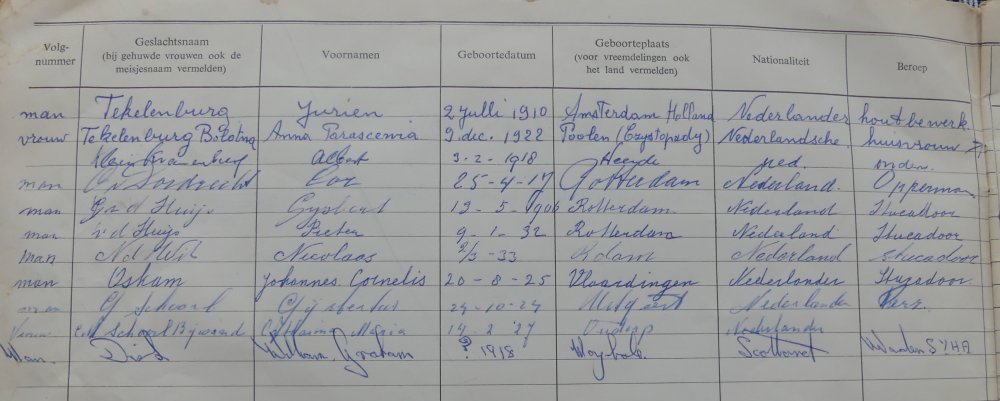 Volg-nummer Geslachtsnaam (bij gehuwde vrouwen ook de meisjesnaam vermelden) Voornamen Geboortedatum Geboorteplaats (voor vreemdelingen ook het land vermelden) Nationaliteit Beroep
man Tekelenburg Jurien 2 julli 1910 Amsterdam Holland Nederlander houtbewerk
vrouw Tekelenburg Bolotna Anna Parascenia 9 dec. 1922 Poolen Nederlandsche huisvrouw
Albert 3-2-1918 Heerde ned
man Dordrecht Cor 25-4-17 Rotterdam Nederland. Opperman
man G v d Huijs Gysbert 13-5-1906 Rotterdam. Nederland Stucadoor
man v d Huijs Pieter 9-1-32 Rotterdam Nederland Stucadoor
man Nicolaas 3-33 Rdam Nederland stucadoor
man Osham Johannes Cornelis 20-8-25 Vlaardingen Nederlander Stucadoor.
man Schoorl Gijsbertus 24-10-24 Uitgeest Nederlander
Vrouw Schoorl Maria 14-2-27 Oudorp Nederlander
Man. William Graham ? 1918 Maybole. Scotland Warden S.Y.H.A